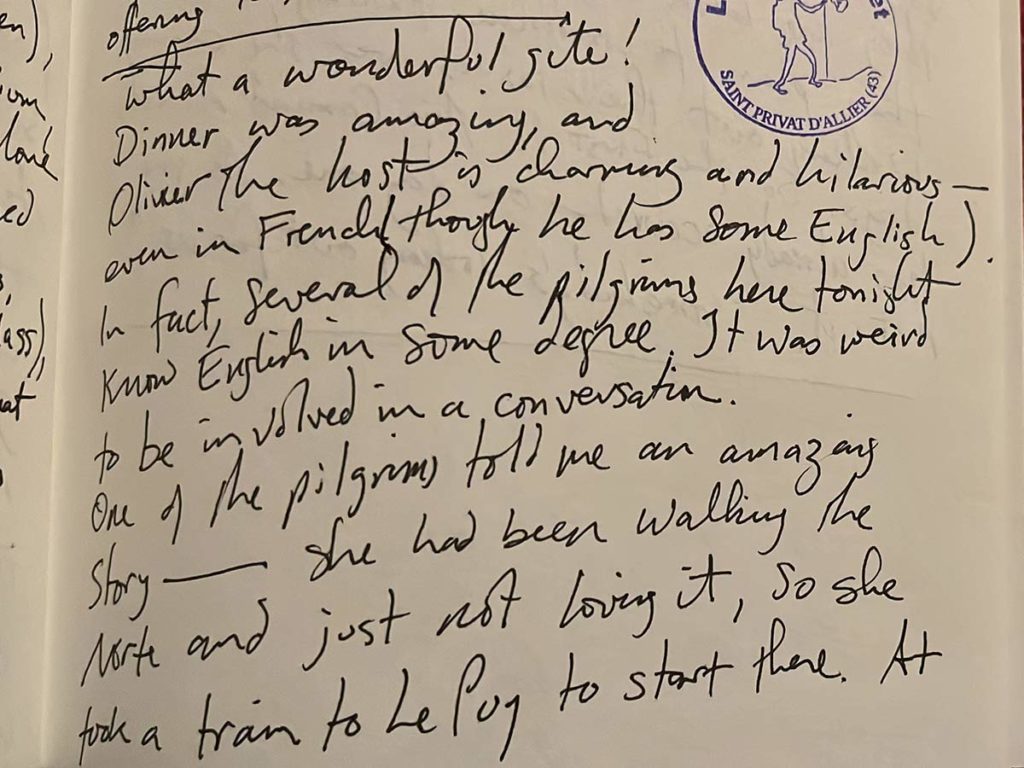 offering
What a wonderful gite!
Dinner was amazing, and
Olivier the host is charming and hilarious —
even in French (though he has some English).
In fact, several of the pilgrims here tonight
know English in some degree. It was weird
to be involved in a conversation.
One of the pilgrims told me an amazing
story — she had been walking the
Norte and just not loving it, so she
took a train to Le Puy to start there. At
SAINT PRIVAT D'ALLIER (43)